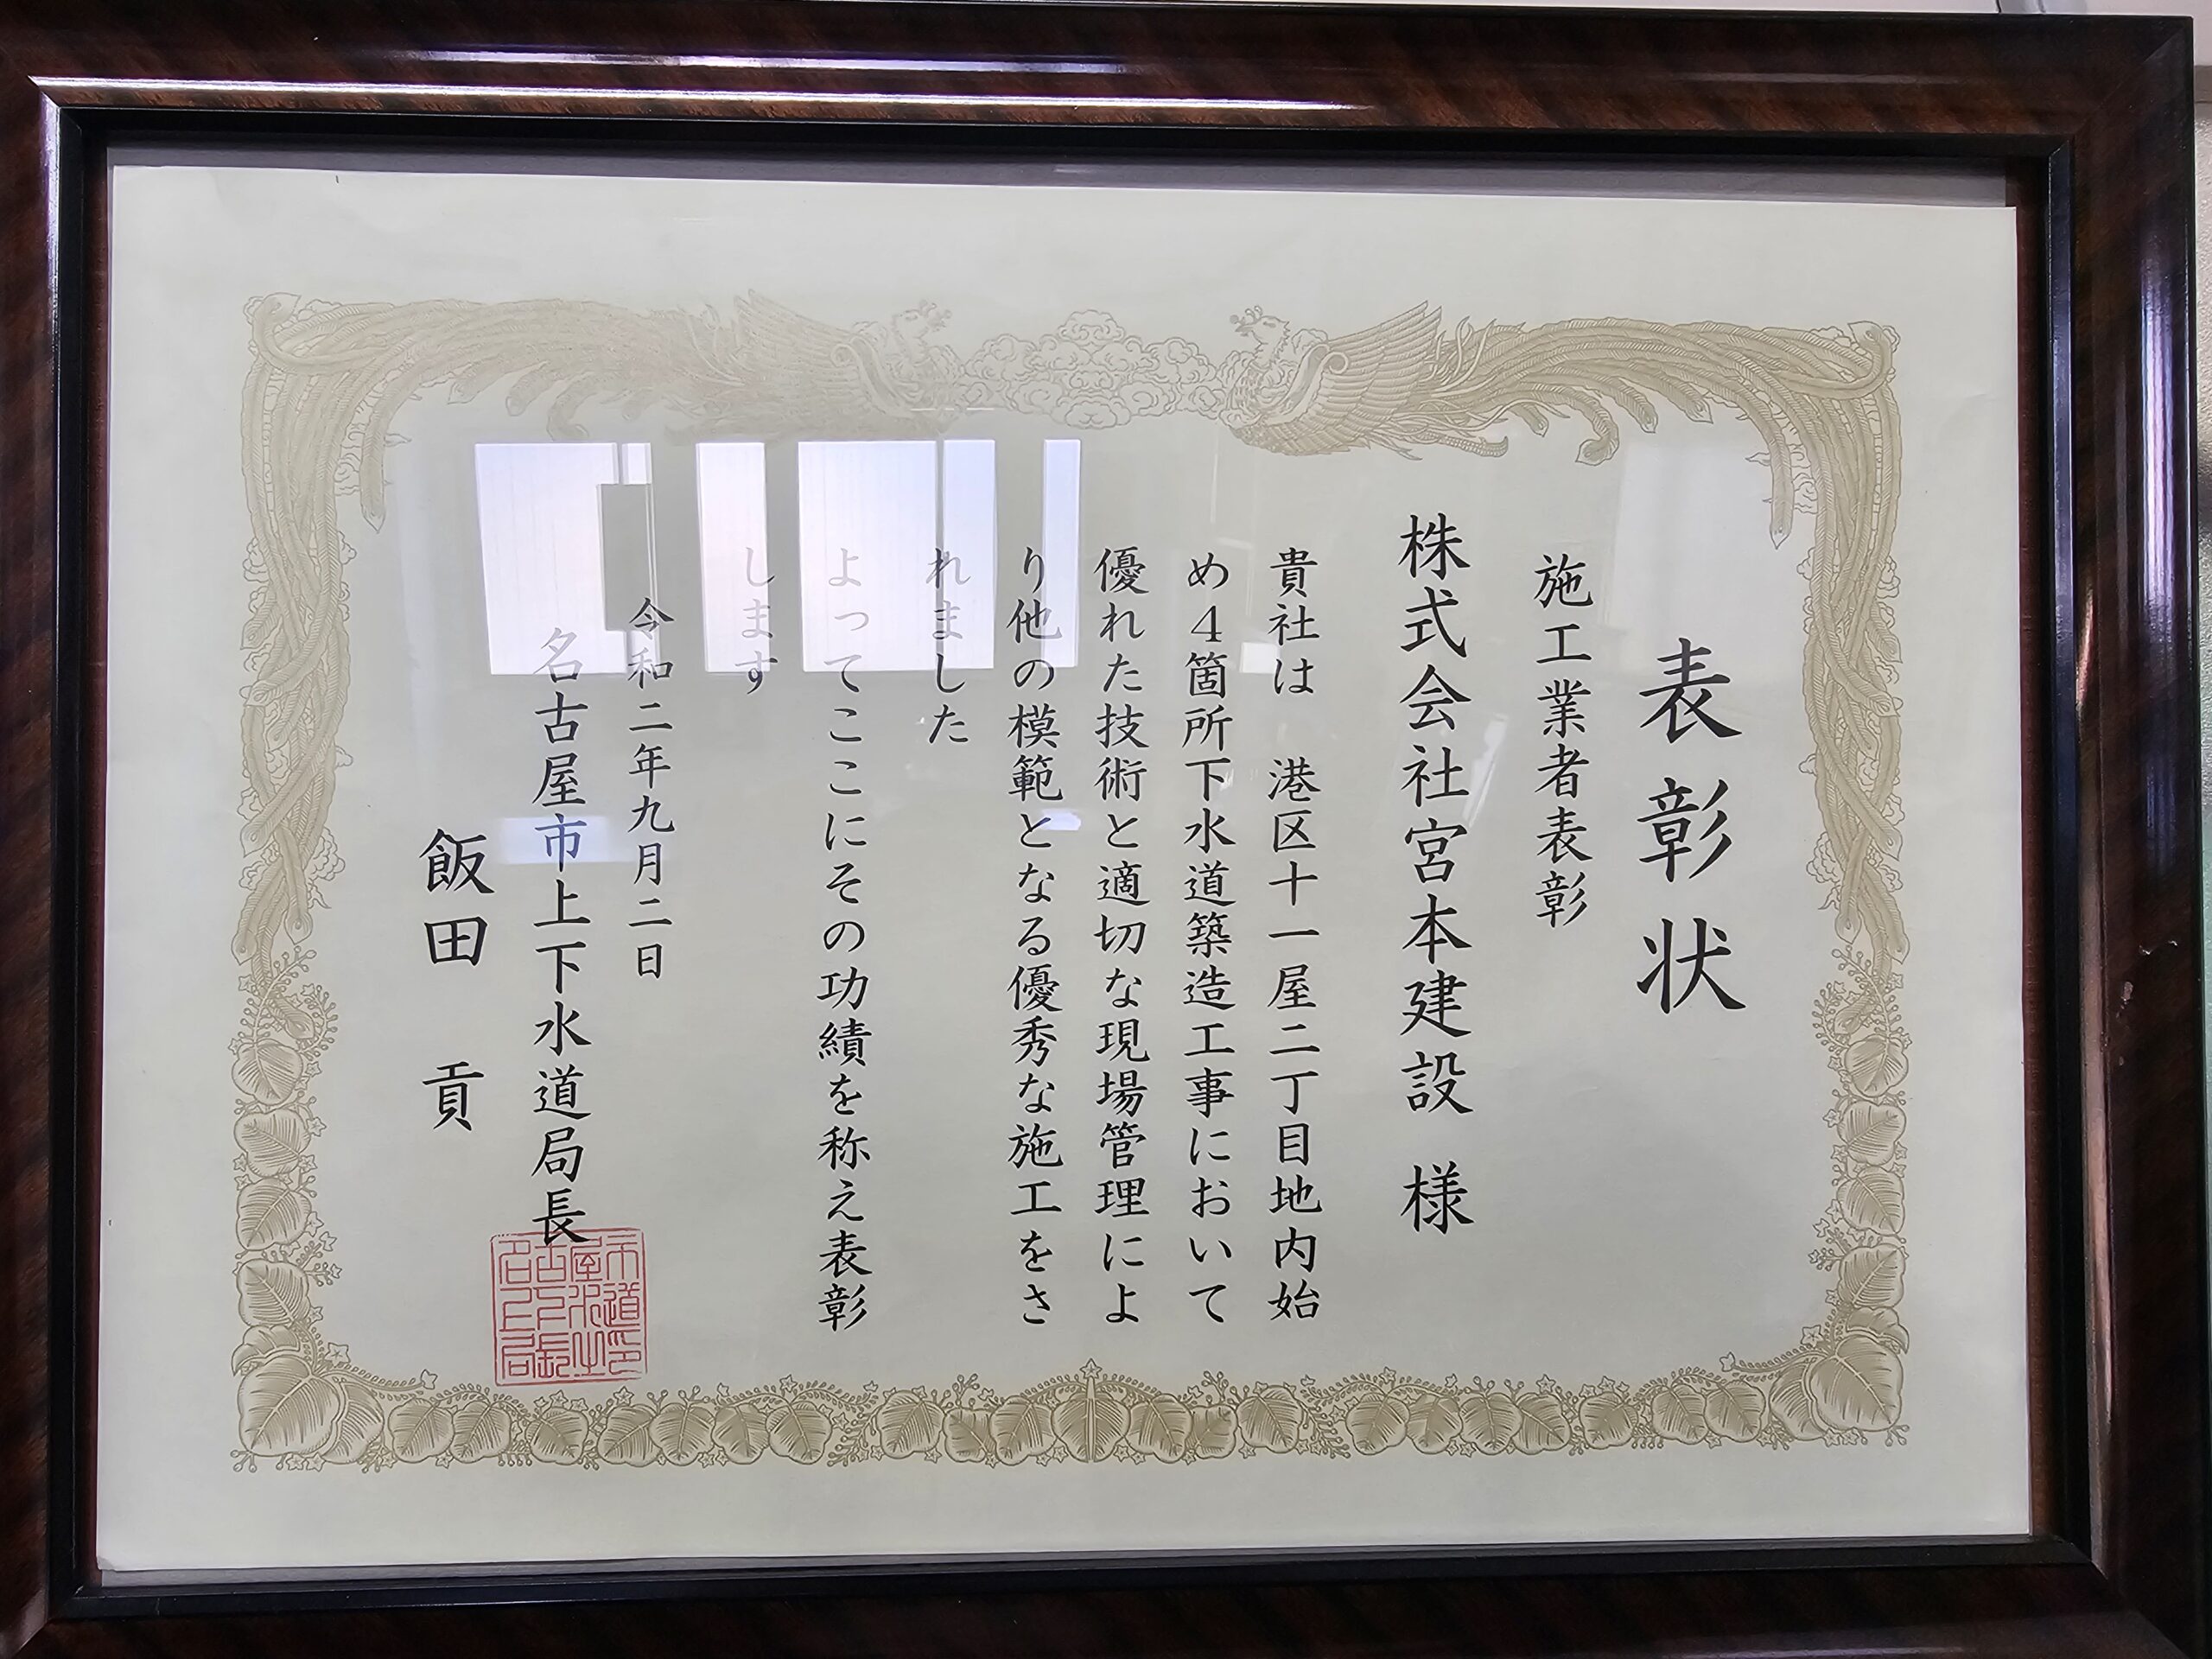 表彰状
施工業者表彰
株式会社宮本建設 様
貴社は 港区十一屋二丁目地内始
め4箇所下水道築造工事において
優れた技術と適切な現場管理によ
り他の模範となる優秀な施工をさ
れました
よってここにその功績を称え表彰
します
令和二年九月二日
名古屋市上下水道局長
飯田 貢
名古屋市上下水道局長之印